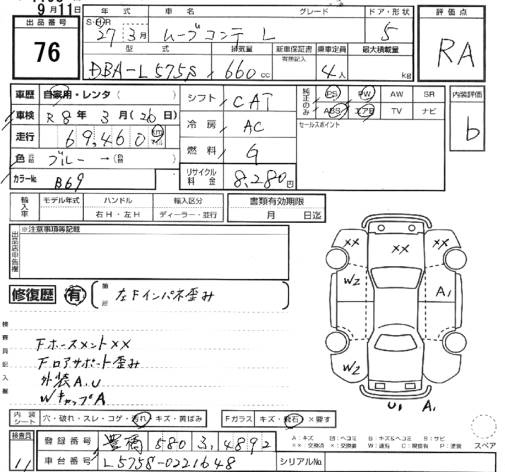 9月11日
出品番号
76
年式 車名 グレード ドア・形状
S・H 27年 3月 ムーブコンテ L 5
型式 排気量 新車保証書 乗車定員 最大積載量
有無記載
DBA-L575S 660cc 4人 kg
評価点
RA
車歴 自家用・レンタ( )
車検 R8年 3月(26日)
走行 69,460
色 ブルー→
カラーNo. B69
シフト CAT
冷房 AC
燃料 G
リサイクル料金 8,280円
純正のみ
PS PW AW SR
ABS エアB TV ナビ
セールスポイント
内装評価
b
輸入車 モデル年式 ハンドル 輸入区分
右H・左H ディーラー・並行
書類有効期限
月 日迄
出品店申告欄
※注意事項等記載
修復歴 有 左Fインパネ歪み
検査員記入欄
Fホースメント××
Fロアサポート歪み
外装A.U
WキャップA
×× ×× ××
W2 A1
W2
U1 A1
内装シート 穴・破れ・スレ・コゲ・汚れ キズ・黄ばみ
Fガラス キズ・飛石 ×要す
検査員
11
登録番号 豊橋 580 3,4892
車台番号 L575S-0221648
シリアルNo.
スペア